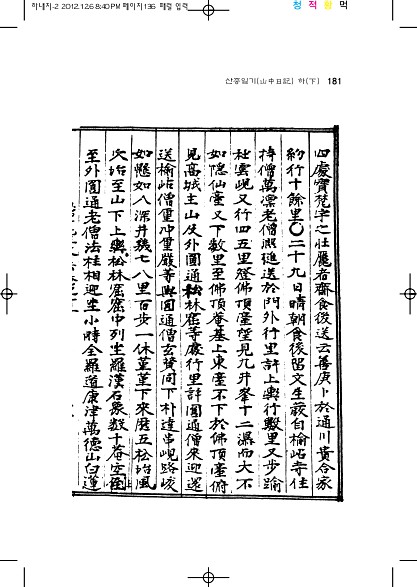 하내지-2 2012.12.6 8:40 PM 페이지136
청 적 황 먹
산중일기(山中日記) 하(下) 181
四處寶梵宇之壯麗者齋食後送云善庚卜於通川黃合家
約行十餘里〇二十九日晴朝食後留文生蔌自楡岾寺住
持僧萬凛老僧熙進送於門外行里許上輿行數里又步踰
杜雲峴又行四五里登佛頂臺望見九井峯十二瀑而大不
如隱仙臺又下數里至佛頂庵基上東臺不下於佛頂臺俯
見高城主山及外圓通松林窟等處行里許圓通僧來迎還
送楡岾僧重冲重嚴等與圓通僧玄贊同下朴達串峴路峻
如懸如入深井幾七八里百步一休菫菫下來歷五松坮風
穴坮至山下上輿松林窟窟中列坐羅漢石象數十菴空
至外圓通老僧法桂相迎坐小時全羅道康津萬德山白蓮